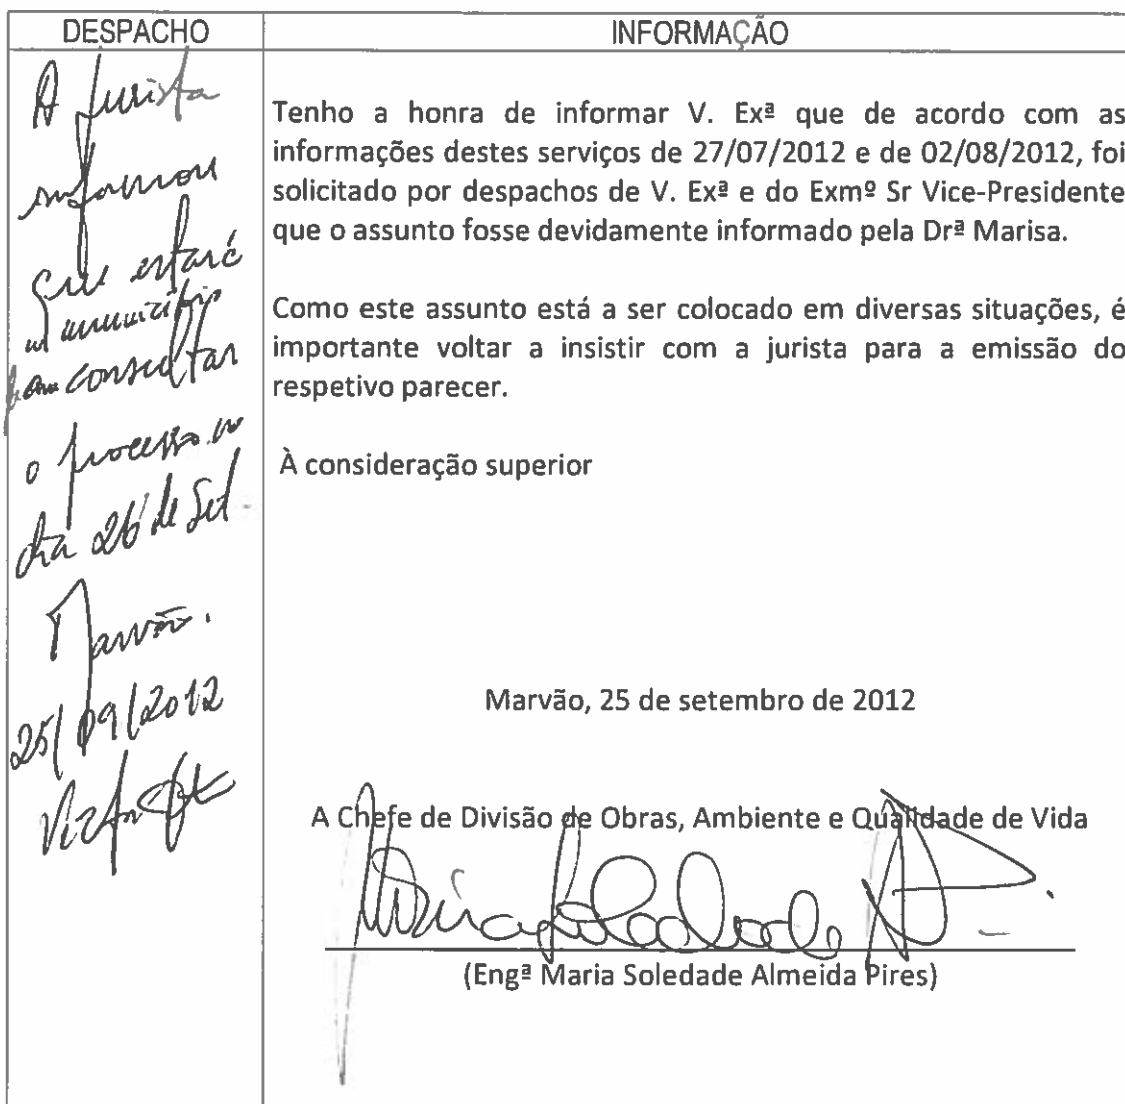 DESPACHO
A jurista
informou
que estará
no município
para consultar
o processo no
dia 26 de Set.
Marvão.
25/09/2012
Victor
INFORMAÇÃO
Tenho a honra de informar V. Exª que de acordo com as
informações destes serviços de 27/07/2012 e de 02/08/2012, foi
solicitado por despachos de V. Exª e do Exmº Sr Vice-Presidente
que o assunto fosse devidamente informado pela Drª Marisa.
Como este assunto está a ser colocado em diversas situações, é
importante voltar a insistir com a jurista para a emissão do
respetivo parecer.
À consideração superior
Marvão, 25 de setembro de 2012
A Chefe de Divisão de Obras, Ambiente e Qualidade de Vida
(Engª Maria Soledade Almeida Pires)